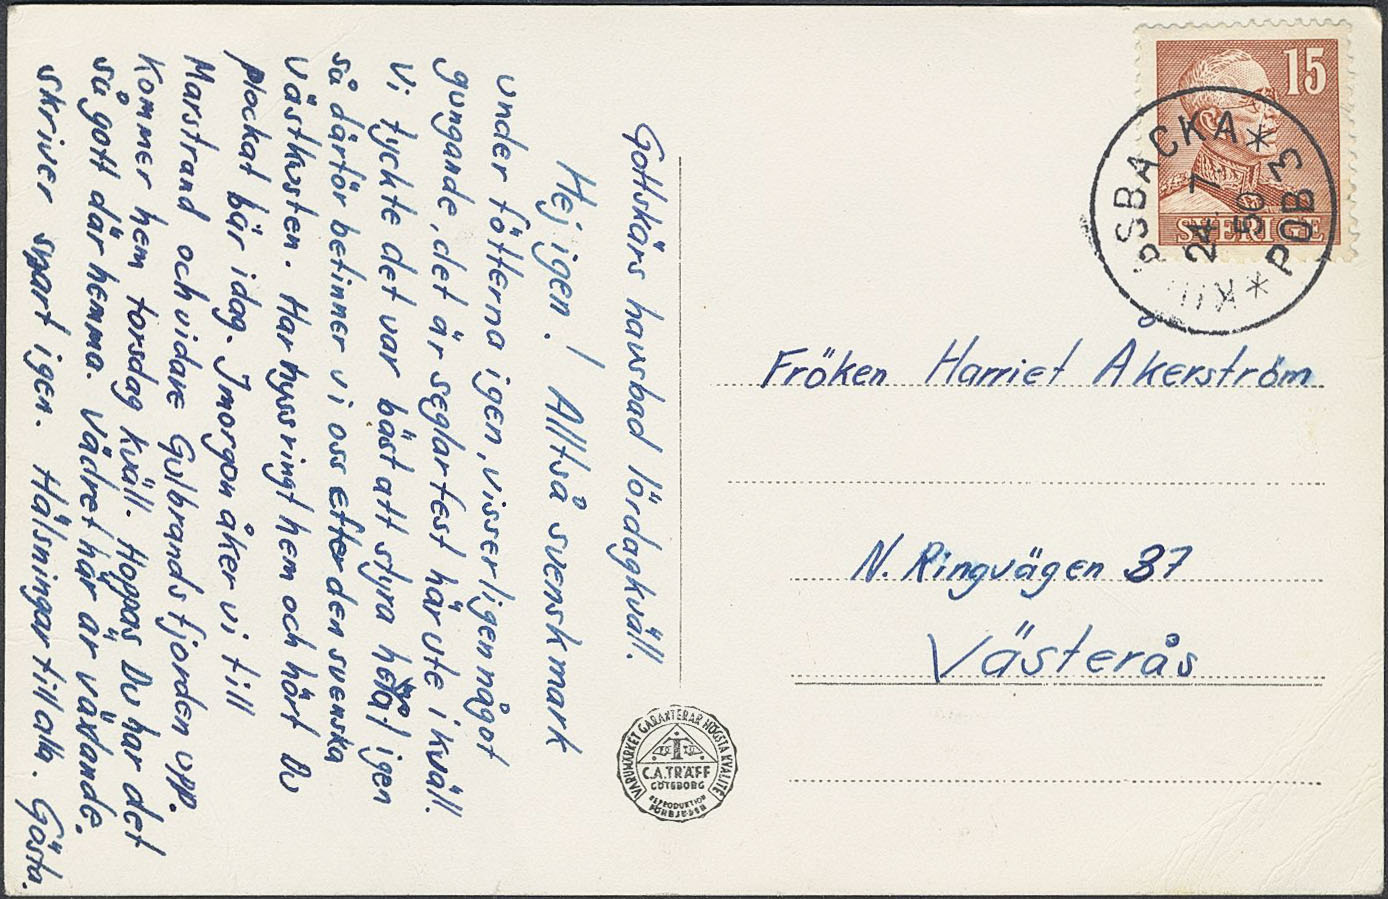 Gottskärs havsbad lördagkväll.
Hej igen! Alltså svensk mark
under fötterna igen, visserligen något
gungande, det är seglarfest här ute i kväll.
Vi tyckte det var bäst att styra hemåt igen
så därför befinner vi oss efter den svenska
västkusten. Har hyss ringt hem och hört Du
plockat bär idag. I morgon åker vi till
Marstrand och vidare Gulbrands fjorden upp.
Kommer hem torsdag kväll. Hoppas Du har det
så gott där hemma. Vädret här är växlande.
Skriver snart igen. Hälsningar till alla. Gösta.
15
SVERIGE
PSBACKA
24 7
50
POB 3
Fröken Harriet Åkerström
N. Ringvägen 37
Västerås
VARUMÄRKET GARANTERAR HÖGSTA KVALITET
C.A. TRÄFF
GÖTEBORG
REPRODUKTION
FÖRBJUDEN